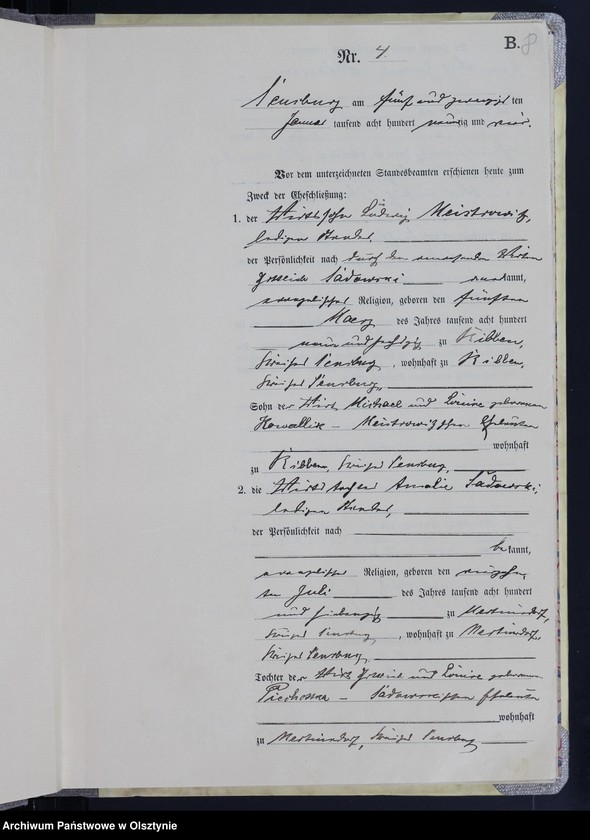 B. 8
Nr. 4
Sensburg am fünf und zwanzigsten
Januar tausend acht hundert neunzig und vier.
Vor dem unterzeichneten Standesbeamten erschienen heute zum
Zweck der Eheschließung:
1. der Wirthssohn Ludwig Meistrowitz,
ledigen Standes,
der Persönlichkeit nach durch den
Sadowski kannt,
evangelischer Religion, geboren den fünften
Maerz des Jahres tausend acht hundert
neun und sechzig zu Ribben,
Kreises Sensburg, wohnhaft zu Ribben,
Kreises Sensburg,
Sohn der Wirth Michael und Louise geborenen
Kowallik – Meistrowitzschen Eheleuten
wohnhaft
zu Ribben, Kreises Sensburg,
2. die Wirthstochter Amalie Sadowski,
ledigen Standes,
der Persönlichkeit nach
bekannt,
evangelischer Religion, geboren den
ten Juli des Jahres tausend acht hundert
und siebenzig zu Mertinsdorf,
Kreises Sensburg, wohnhaft zu Mertinsdorf,
Kreises Sensburg
Tochter der Wirth und Louise geborenen
– Sadowskischen Eheleuten
wohnhaft
zu Mertinsdorf, Kreises Sensburg
Archiwum Państwowe w Olsztynie